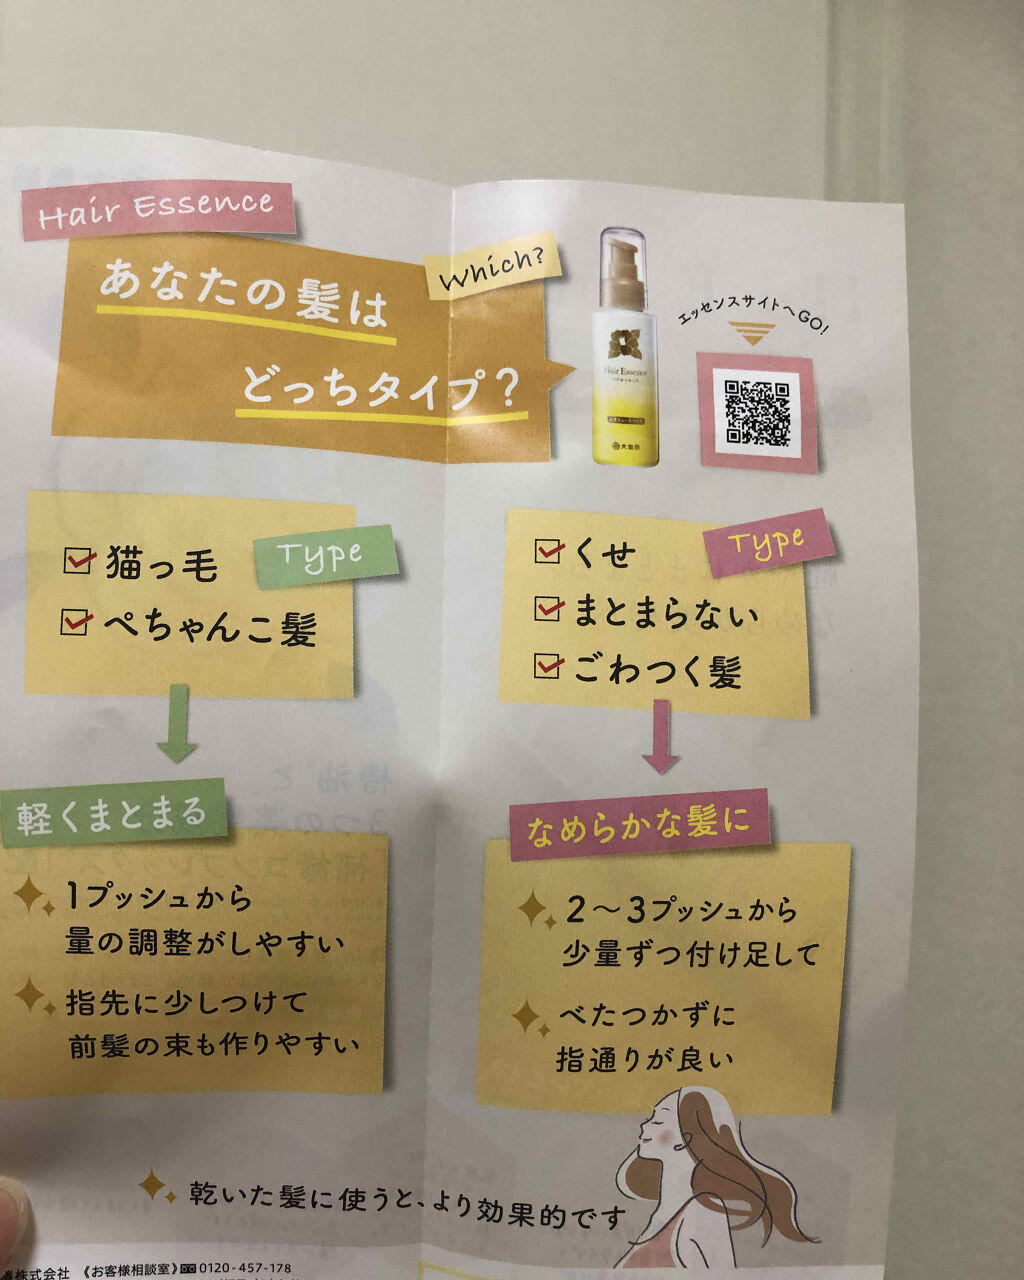 Hair Essence
Which?
あなたの髪は
どっちタイプ？
エッセンスサイトへGO!
Hair Essence
大島椿
Type
猫っ毛
ぺちゃんこ髪
Type
くせ
まとまらない
ごわつく髪
軽くまとまる
1プッシュから
量の調整がしやすい
指先に少しつけて
前髪の束も作りやすい
なめらかな髪に
2〜3プッシュから
少量ずつ付け足して
べたつかずに
指通りが良い
乾いた髪に使うと、より効果的です
株式会社 《お客様相談室》0120-457-178
椿油と
3つの
補修コンプレックス